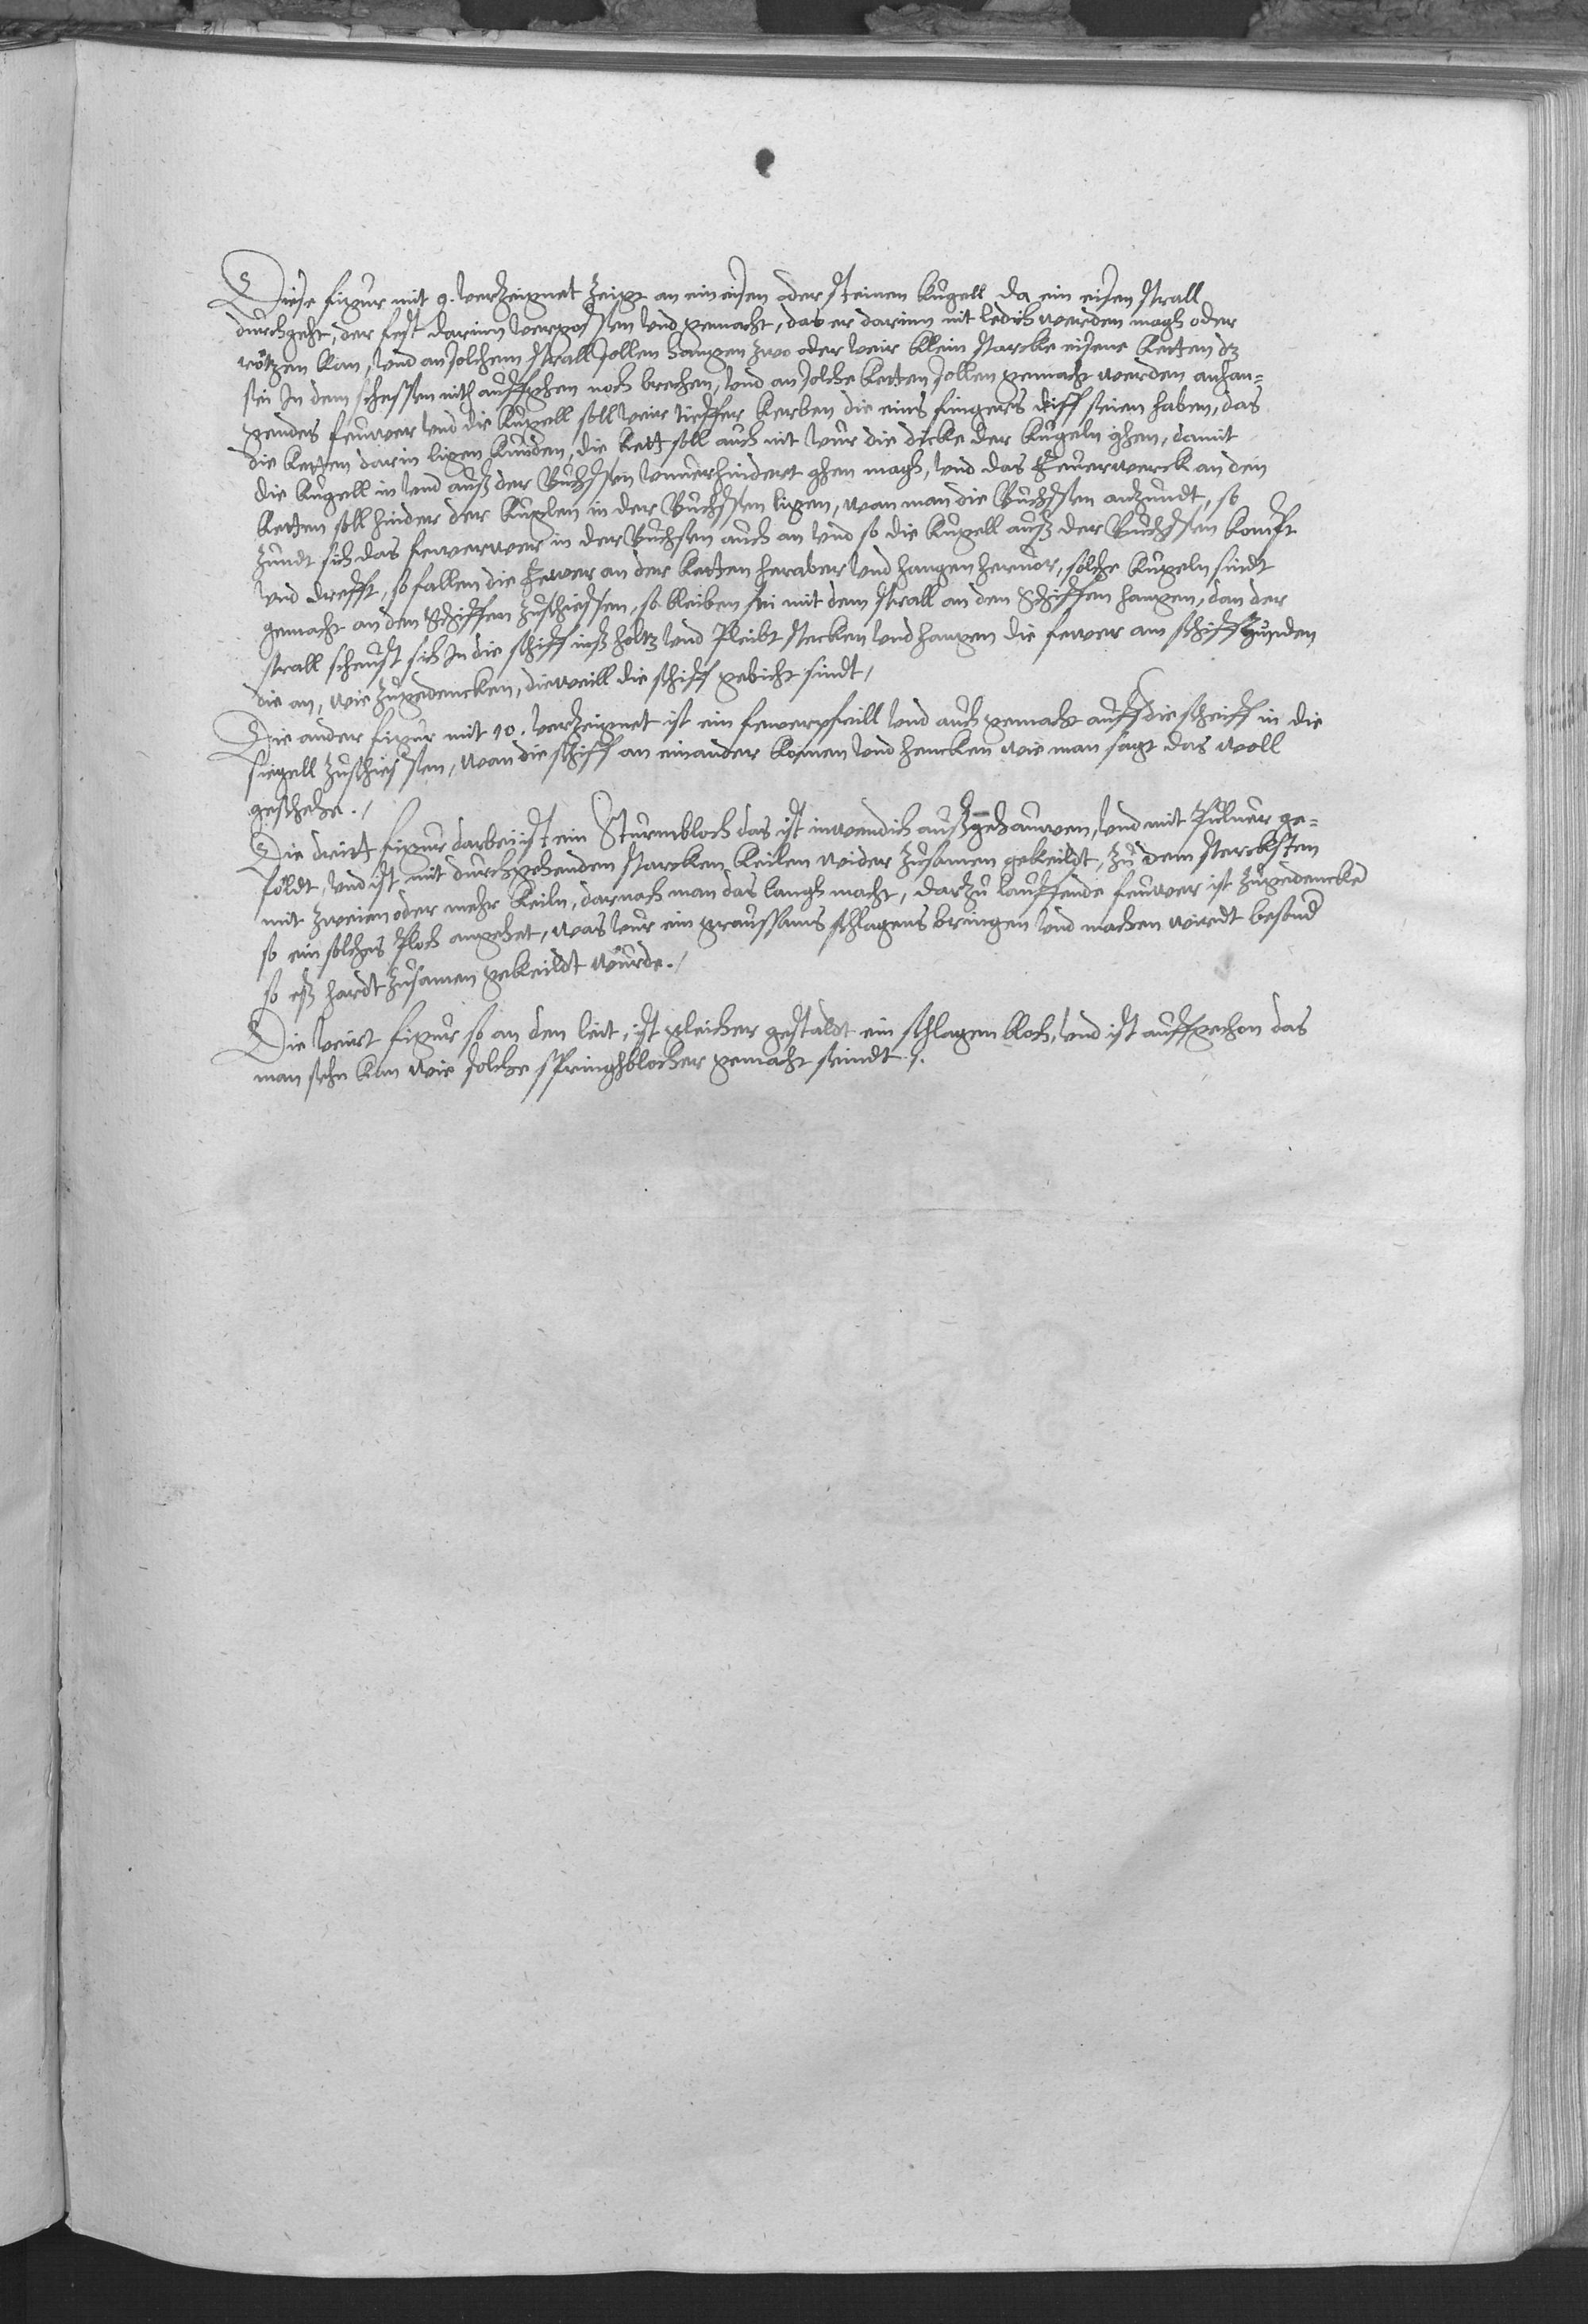 Diese figur mit 9. verzeignet zeigt an ein eisen oder steinen kugell da ein eisen strall
durchgeht, der fest darinn vergossen und gemacht, das er darinn nit ledich werden magh oder
kan, und an solchem strall sollen hangen zwo oder veir klein starcke eisene ketten dz
sei In dem schessen nith auffgehen noch brechen, und an solche ketten sollen gemacht werden anhan=
gendes feuwer und die kugell soll veir tieffer kerben die eins fingers diff seien haben, das
die ketten darin ligen kunden, die kett soll auch nit vur die dicke der kugeln ghen, damit
die kugell in und auß der Buchssen unverhindert ghen magh, und das feuerwerck an den
ketten soll hinder der kuglen in der Buchssen ligen, wan man die Buchssen anzundt, so
zundt sich das feuwerwer in der Buchsen auch an und so die kugell auß der Buchssen kompt
und drefft, so fallen die feuwer an der ketten heraber und hangen hervor, solche kugeln sindt
gemacht an den Schiffen zuschiessen, so bleiben sei mit dem strall an den Schiffen hangen, dan der
strall scheust sich In die schiff inß holtz und Pleibt stecken und hangen die fewer am schiff zunden
die an, wie zugedencken, dieweill die schiff gebicht sindt,
Die ander figur mit 10. verzeignet ist ein fewerpfeill und auch gemacht auff die scheiff in die
siegell zuschiessen, wan die schiff an einander komen und hencken wie man sagt das woll
geschehe./
Die dritt figur darbei ist ein Sturmbloch das ist inwendich außgehauwen, und mit Pulver ge=
foldt, und ist mit durchgehenden starcken keilen wider zusamen gekeildt, zu dem sterckten
mit zweien oder mehr keiln, darnach man das langh macht, darzu lauffende feuwer ist zugedencken
so ein solches Ploch angehet, was vur ein graussams schlagens bringen und machen wirdt besond
so eß hardt zusamen gekeildt wurde./
Die veirt figur so an den leit, ist gleicher gestaldt ein schlagen bloch, und ist auffgethon das
man sehn kan wie solche springhblocher gemacht seindt /.